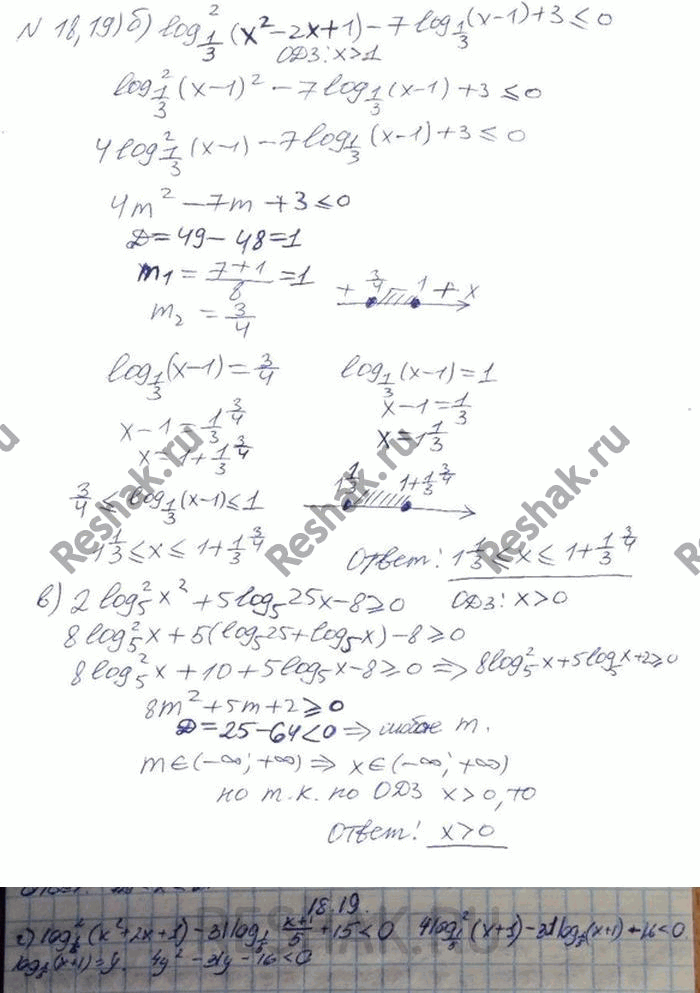 N 18,19) б) log²_{1/3}(x²-2x+1)-7log_{1/3}(x-1)+3≤0
ОДЗ: x>1
log²_{1/3}(x-1)²-7log_{1/3}(x-1)+3≤0
4log²_{1/3}(x-1)-7log_{1/3}(x-1)+3≤0
4m²-7m+3≤0
D=49-48=1
m₁=(7+1)/8=1
m₂=3/4
+ 3/4 - 1 + x
log_{1/3}(x-1)=3/4 log_{1/3}(x-1)=1
x-1=1/3^{3/4} x-1=1/3
x=1+1/3^{3/4} x=1 1/3
3/4≤log_{1/3}(x-1)≤1 1 1/3 1+1/3^{3/4}
1 1/3≤x≤1+1/3^{3/4} Ответ: 1 1/3≤x≤1+1/3^{3/4}
в) 2log₅²x²+5log₅25x-8≥0 ОДЗ: x>0
8log₅²x+5(log₅25+log₅x)-8≥0
8log₅²x+10+5log₅x-8≥0 ⇒ 8log₅²x+5log₅x+2≥0
8m²+5m+2≥0
D=25-64<0 ⇒ любое m.
m∈(-∞;+∞) ⇒ x∈(-∞;+∞)
но т.к. по ОДЗ x>0, то
Ответ: x>0
18.19.
г) log²_{1/5}(x²+2x+1)-31log_{1/5} (x+1)/5 +15<0 4log²_{1/5}(x+1)-31log_{1/5}(x+1)-16<0
log_{1/5}(x+1)=y 4y²-31y-16<0
Reshak.ru
Reshak.ru
Reshak.ru
RESHAK.RU